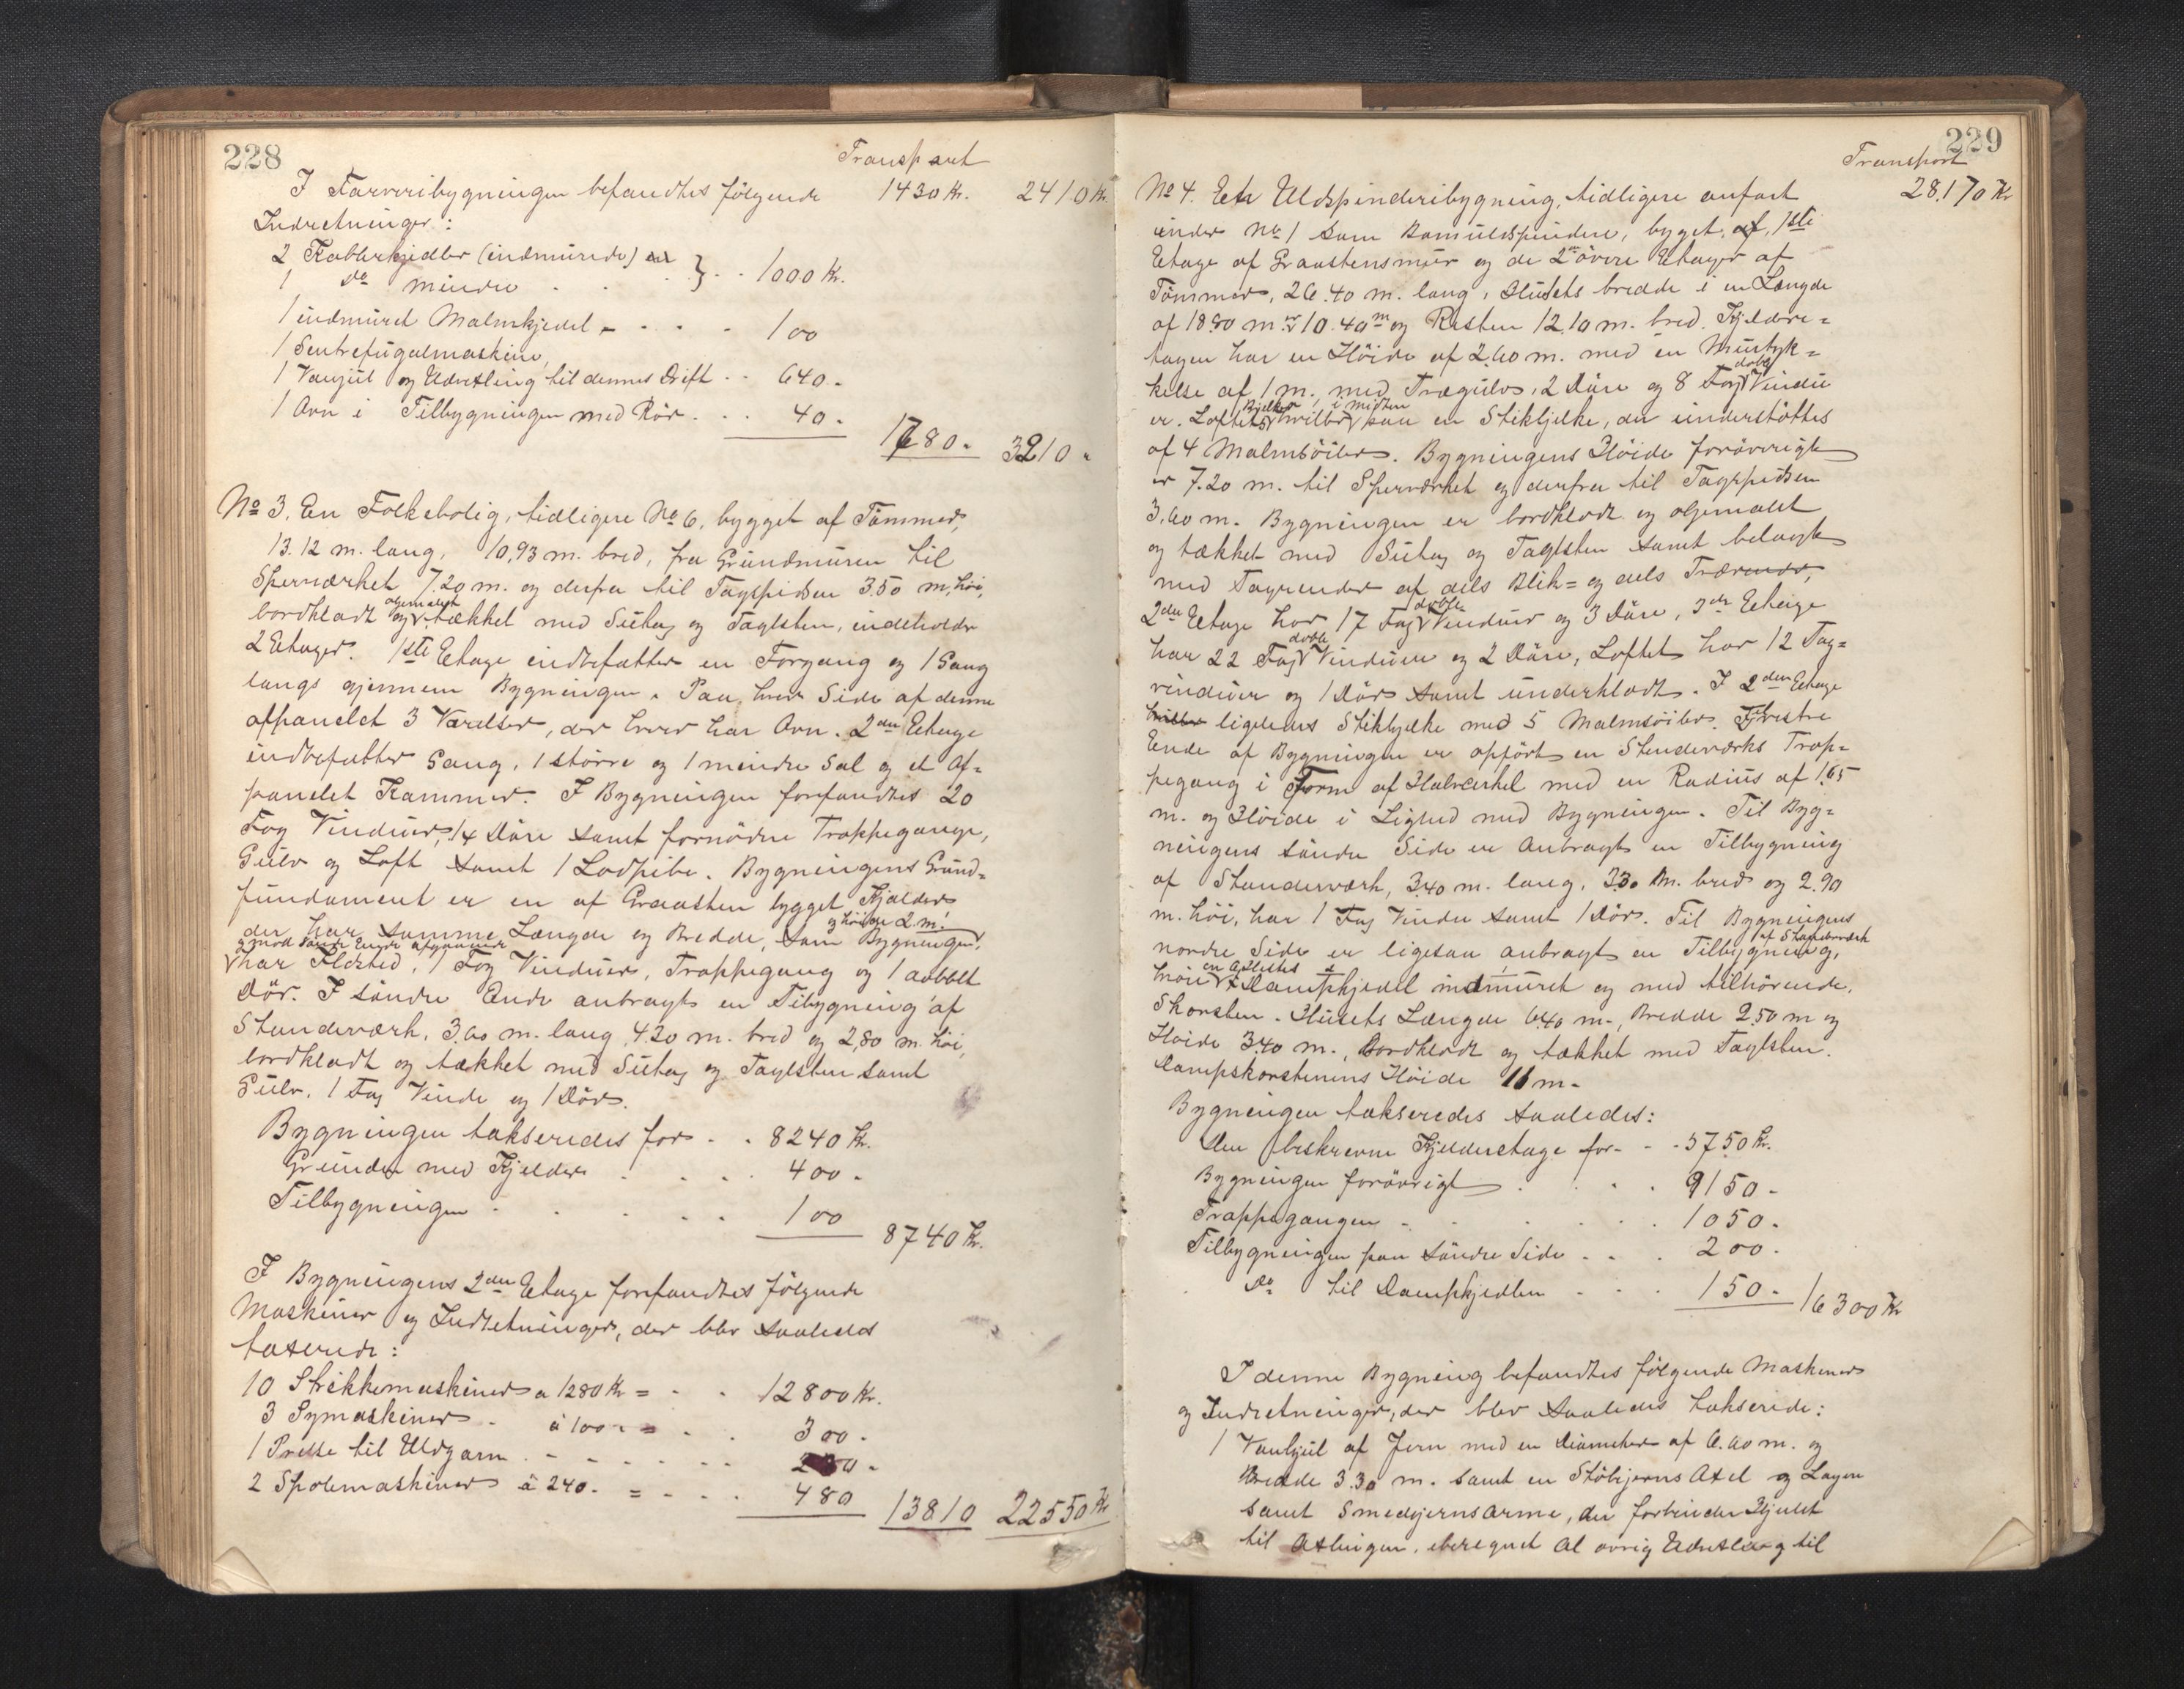 228
Transport
I Farveribygningen befandtes følgende 1430 Kr. 2410 Kr.
Indretninger:
2 Kobberkjedler (indmurede)
1 do mindre } 1000 Kr.
1 indmuret Malmkjedel 100
1 Sentrefugalmaskine,
1 Vanhjul og Udvexling til dennes Drift 640 "
1 Ovn i Tilbygningen med Rör 40 "
1780 " 3210 "
No 3. En Folkebolig, tidligere No 6, bygget af Tömmer,
13.12 m. lang, 10,93 m. bred, fra Grundmuren til
Sperværket 7.20 m. og derfra til Tagspidsen 3.50 m. höi,
bordklædt oljemalet og tækket med Sutag og Taglsten, indeholder
2 Etager. 1ste Etage indbefatter en Forgang og 1 Gang
langs gjennem Bygningen. Paa hver Side af denne
afpanelet 3 Værelser, der hver har Ovn. 2den Etage
indbefatter Gang, 1 större og 1 mindre Sal og et Af=
panelet Kammer. I Bygningen forefandtes 20
Fag Vinduer, 14 Döre samt fornödne Trappegange,
Gulv og Loft samt 1 Lodpibe. Bygningens Grund=
fundament er en af Graasten bygget Kjælder
og höide 2 m.
der har samme Længde og Bredde, som Bygningen,
har Ildsted, 1 Fag Vinduer, Trappegang og 1 dobbelt
Dör. I söndre Ende anbragt en Tilbygning af
Standerværk, 3.60 m. lang, 4.20 m. bred og 2,80 m. höi,
bordklædt og tækket med Sutag og Taglsten samt
Gulv, 1 Fag Vindu og 1 Dör.
Bygningen takseredes for 8240 Kr.
Grunden med Kjelder 400 "
Tilbygningen 100
8740 Kr.
I Bygningens 2den Etage forefandtes følgende
Maskiner og Indretninger, der blev saaledes
taxerede:
10 Strikkemaskiner a 1280 Kr = 12800 Kr.
3 Symaskiner à 100 " = 300 "
1 Presse til Uldgarn 230 "
2 Spolemaskiner à 240 " = 480 13810 22550 Kr
229
Transport
28.170 Kr
No 4. Et Uldspinderibygning, tidligere anført
under No 1 som Bomuldspinderi, bygget af, 1ste
Etage af Graastensmur og de 2 övre Etager af
Tömmer, 26.40 m. lang, Husets bredde i en Længde
af 18.80 m er 10.40 m og Resten 12.10 m. bred. Kjelder=
etagen har en Höide af 2.60 m. med en Murtyk=
kelse af 1 m., med Trægulv, 2 Döre og 8 Fag doble Vindu
er. Loftets Bjelker hviler i Midten paa en Stikbjelke, der understöttes
af 4 Malmsöiler. Bygningens Höide foröverigt
er 7.20 m. til Sperværket og derfra til Tagspidsen
3.60 m. Bygningen er bordklædt og oljemalet
og tækket med Sutag og Taglsten samt belagt
med Tagrender af dels Blik= og dels Trærender,
2den Etage har 17 Fag doble Vinduer og 3 Döre, 3die Etage
har 22 Fag doble Vinduer og 2 Döre, Loftet har 12 Tag=
vinduer og 1 Dör samt underklædt. I 2den Etage
hviler ligeledes Stikbjelke med 5 Malmsöiler. I vestre
Ende af Bygningen er opfört en Stenderværks Trap=
pegang i Form af Halvcirkel med en Radius af 1.65
m. og Höide i Lighed med Bygningen. Til Byg=
ningens söndre Side er Anbragt en Tilbygning
af Standerværk, 3.40 m. lang, 3.30 m. bred og 2.90
m. höi, har 1 Fag Vindu samt 1 Dör. Til Bygningens
nordre Side er ligesaa anbragt en Tilbygning, af Standerværk
hvori Dampkjedel indmuret og med tilhörende
Skorsten. Husets Længde 6.40 m., Bredde 2.50 m og
Höide 3.40 m., Bordklædt og tækket med Taglsten.
Dampskorstenens Höide 11 m.
Bygningen takseredes saaledes:
Den beskrevne Kjelderetage for 5750 Kr.
Bygningen forövrigt 9150 "
Trappegangen 1050 "
Tilbygningen paa söndre Side 200 "
Do til Dampkjedlen 150 " 16300 Kr
I denne Bygning befandtes følgende Maskiner
og Indretninger, der blev saaledes takserede:
1 Vanhjul af Jern med en Diameter af 6.60 m. og
Bredde 3.30 m. samt en Stöbjerns Axel og Lagere
samt Smedjerns Arme, der forbinder Hjulet
til Axlingen, iberegnet Al övrig Udvexling til